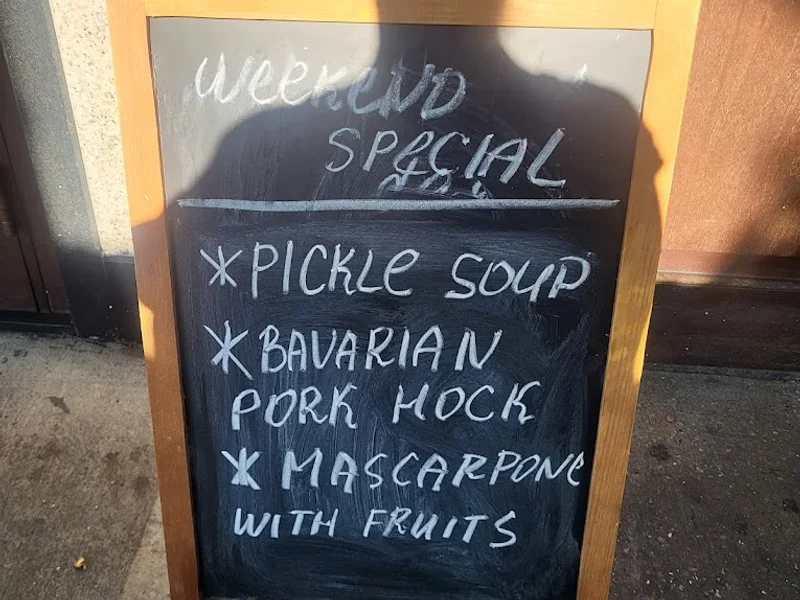 WEEKEND
SPECIAL
* PICKLE SOUP
* BAVARIAN
PORK HOCK
* MASCARPONE
WITH FRUITS